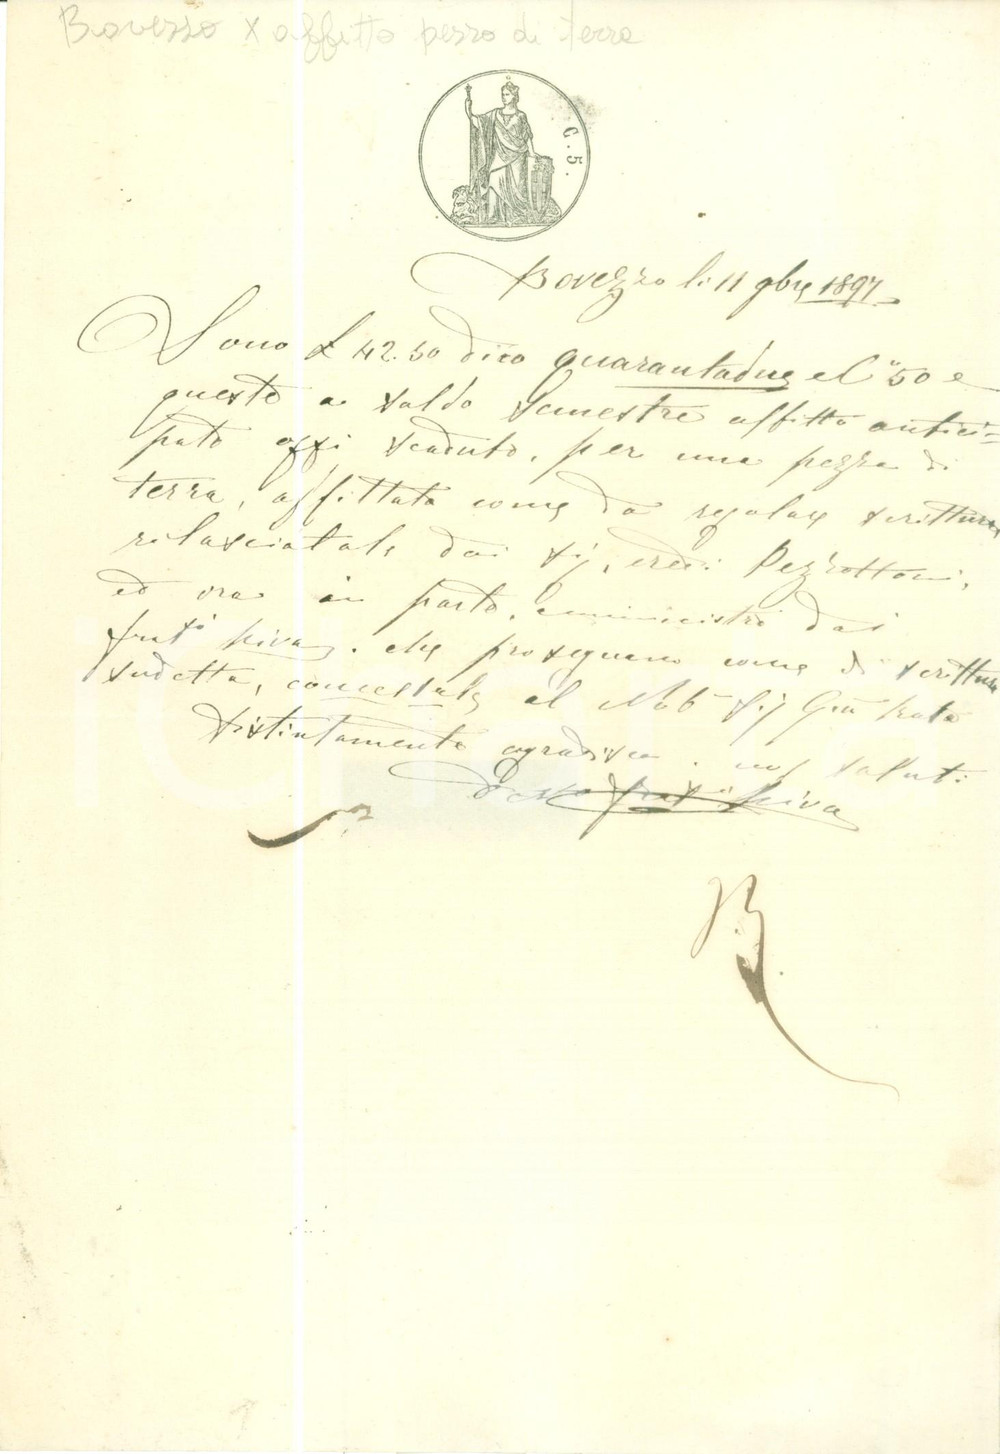 Bovezzo x affitto pezzo di terra
C. 5.
Bovezzo li 11 9bre 1897
Sono £ 42.50 dico quarantadue e C.i 50 e
questo a saldo Semestre affitto antici=
pato oggi scaduto, per una pezza di
terra, affittata come da regolare scrittura
rilasciatale dai sig. eredi Pezzottoni,
ed ora in parte, amministri dai
frati Riva. che proseguano come di scrittura
sudetta, al Nob. Sig
Distintamente aggradisca. saluti
frati Riva